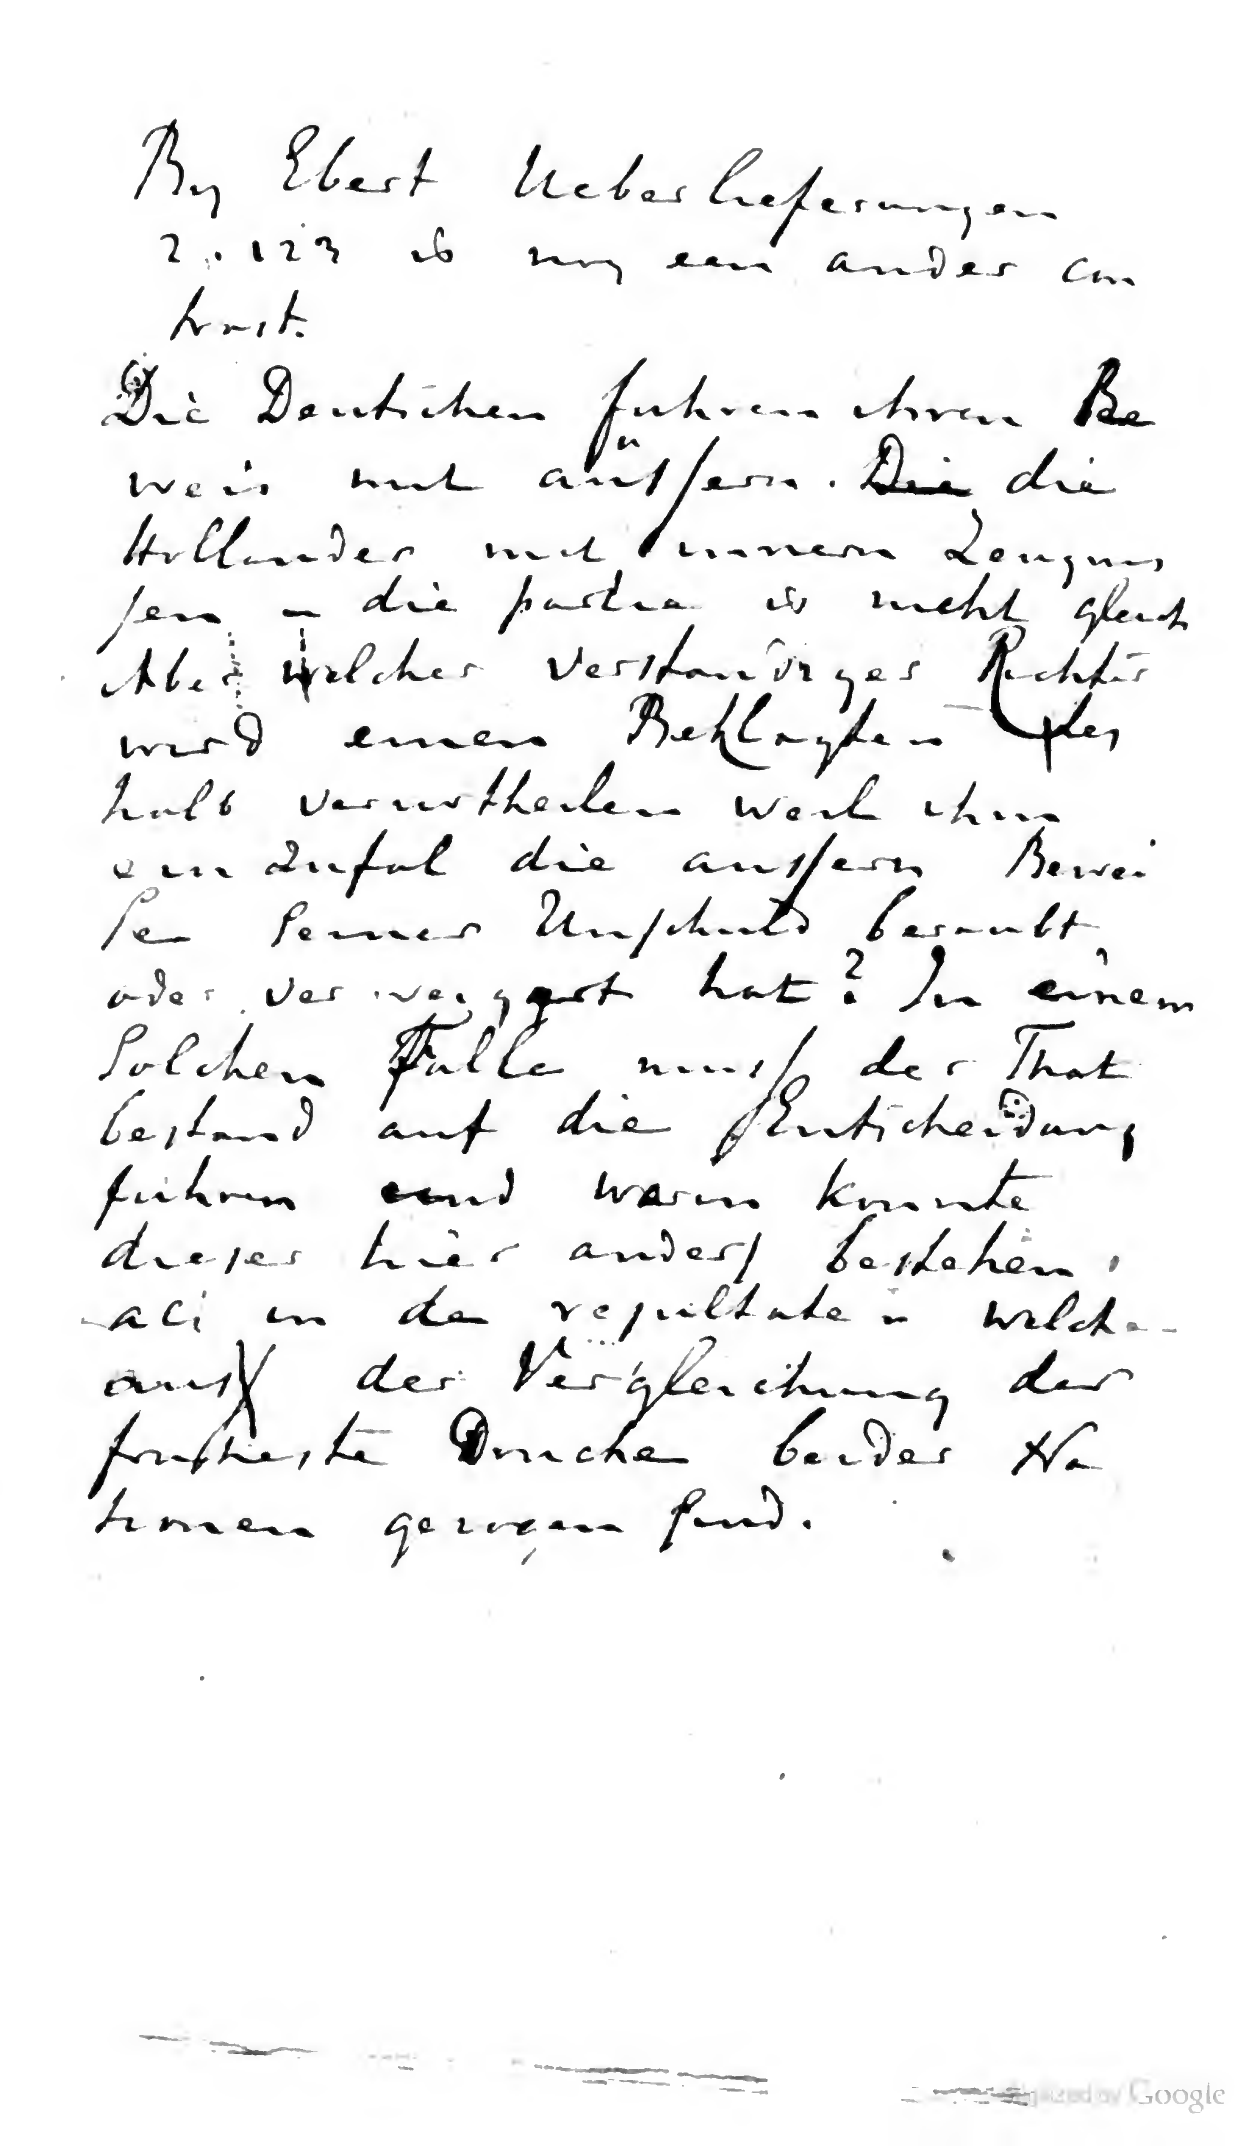 By Ebert Ueberlieferungen
2.123 is nog een ander con
trast.
Die Deutschen fuhren ihren Be
weis mit äüssern. Die die
Hollander mit innern Zeugnis
sen – die partie is nicht gleich
Aber welcher verstandiges Richter
wird einen Beklagten des
halb verurtheilen weil ihm
ein Zufal die aussern Bewei
se seiner Unschuld beraubt
oder verweigert hat? In einem
solchen Falle muss der That
bestand auf die Entscheidung
fuhren und warin konnte
dieser hier anders bestehen
als in den resultaten welche
aus der Vergleichung der
fruheste Drucke beider Na
tionen gezogen sind.
Digitized by Google